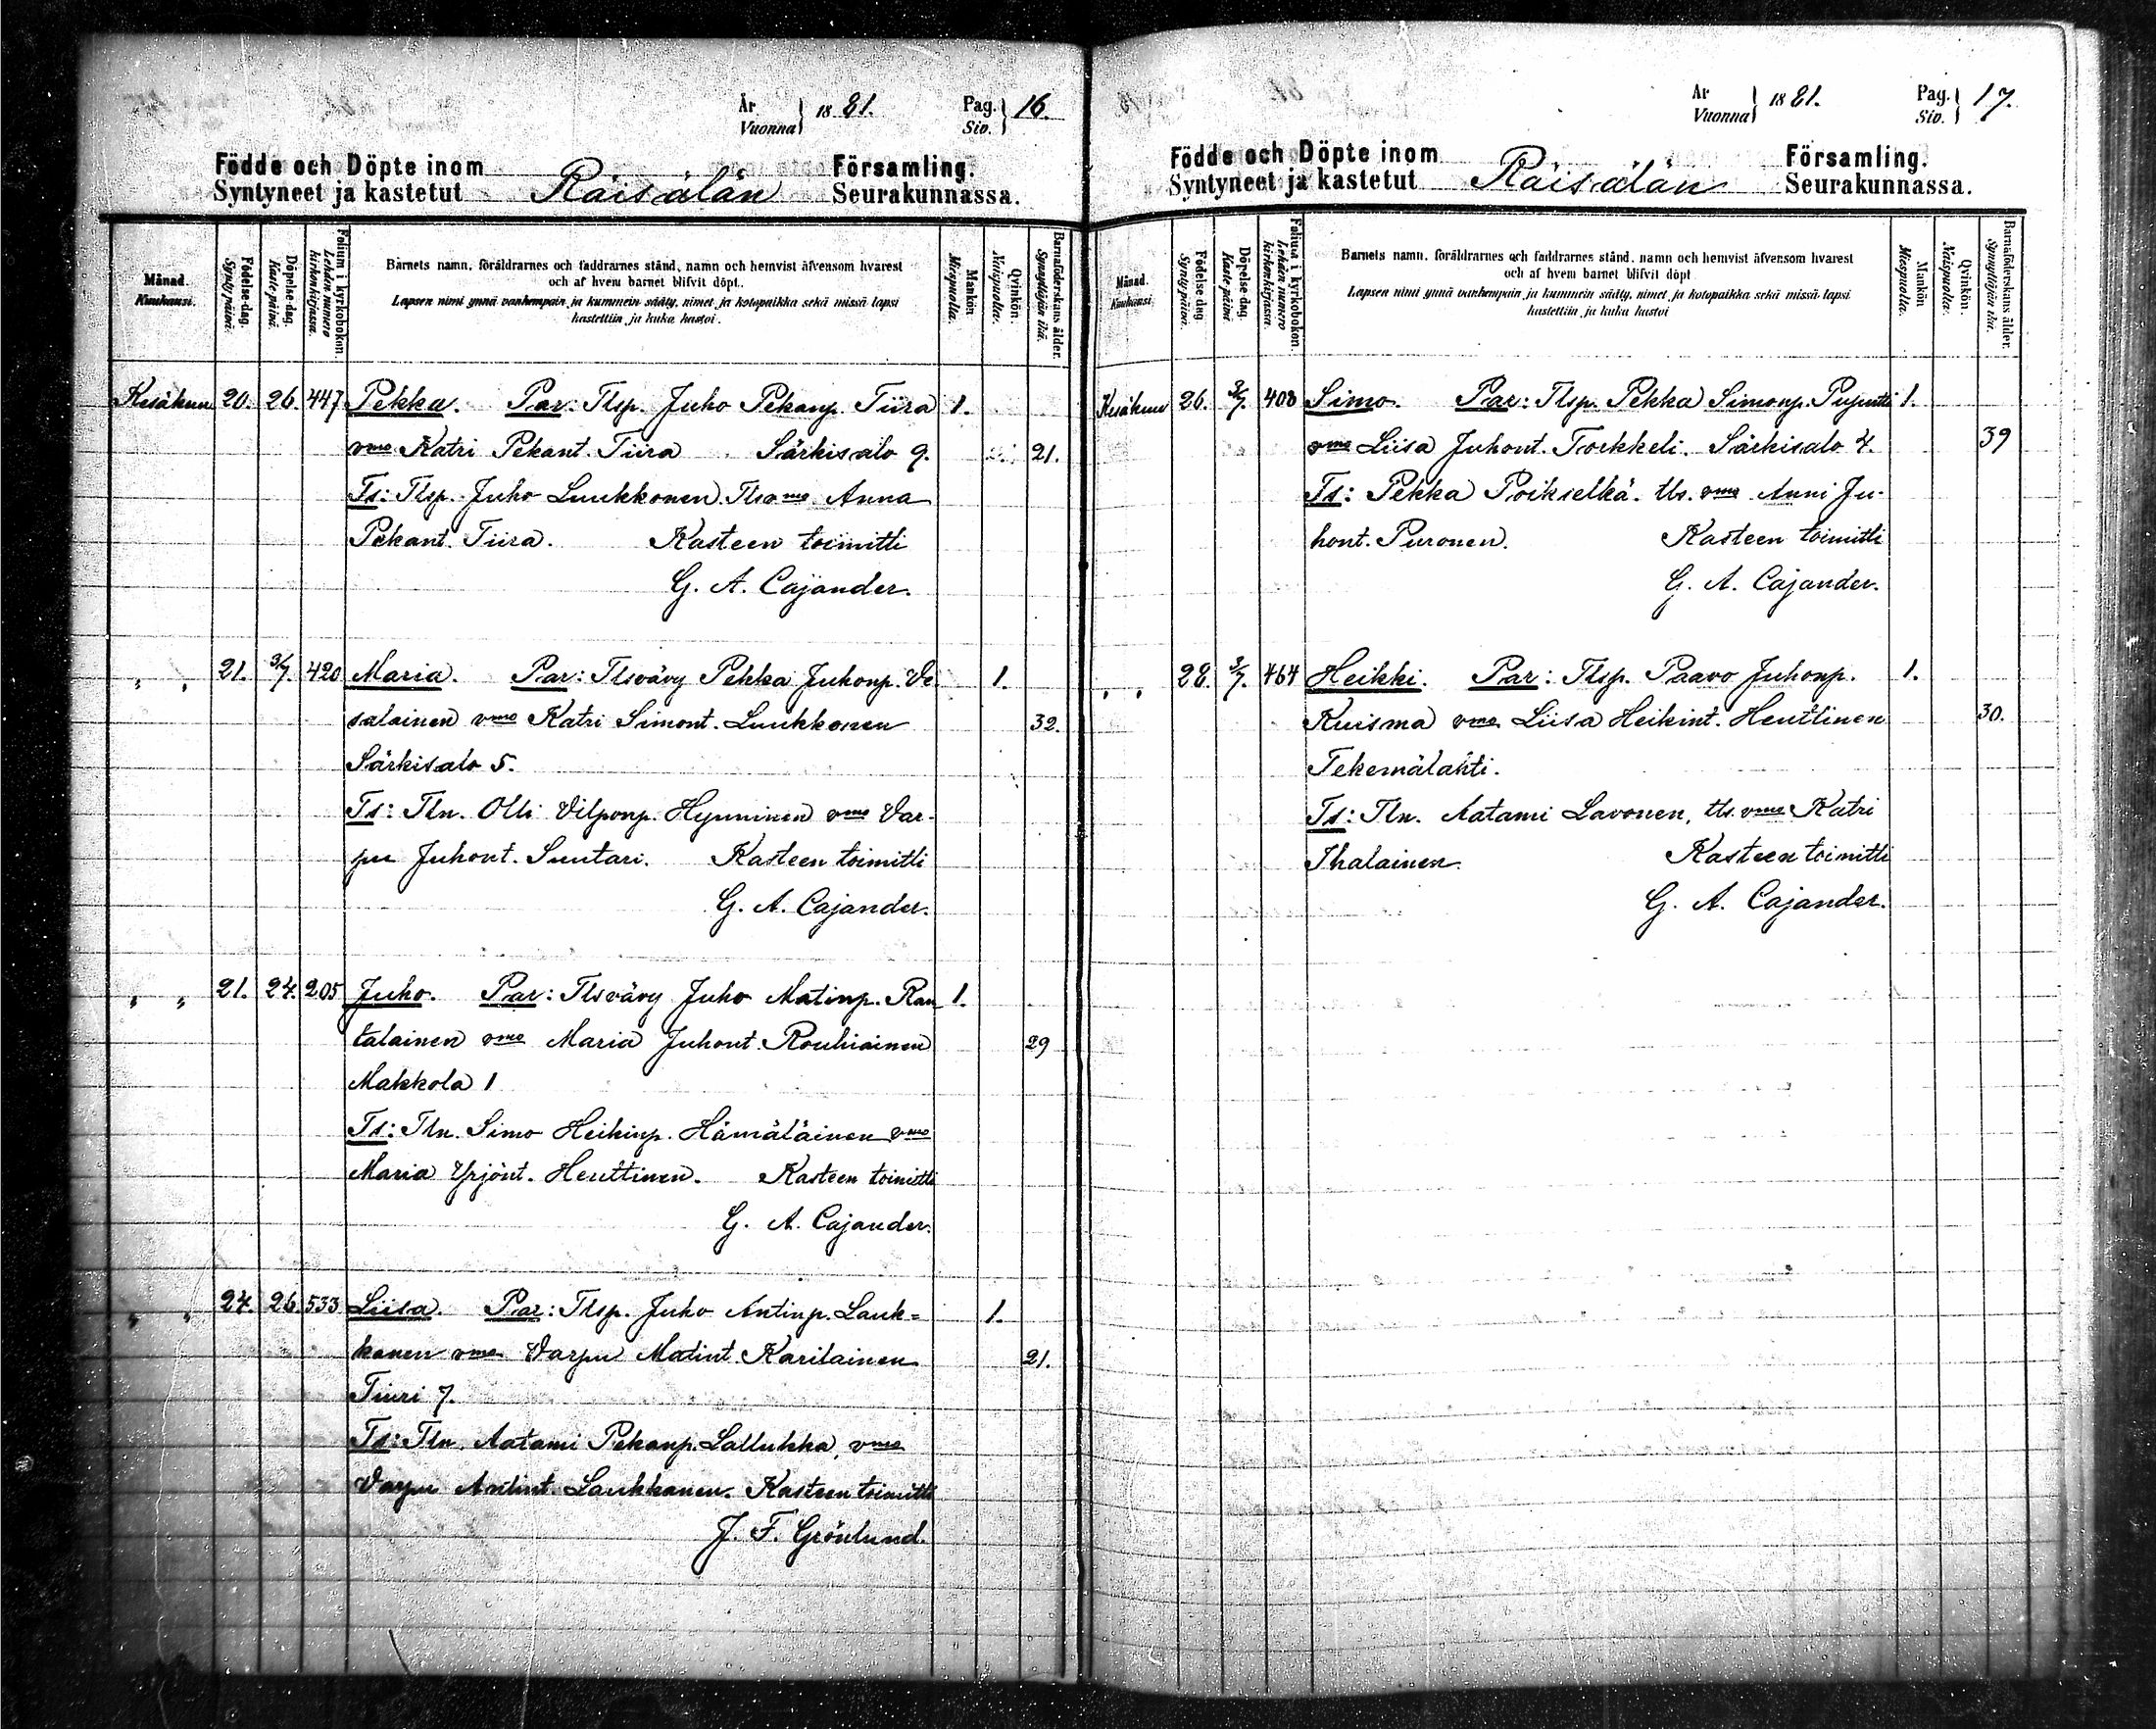 År
Vuonna } 1881. Pag.
Siv. } 16.
Födde och Döpte inom Församling.
Syntyneet ja kastetut Räisälän Seurakunnassa.
Månad.
Kuukausi.
Födelse-dag.
Synty päivä.
Döpelse-dag.
Kaste-päivä.
Folium i kyrkoboken.
Lehden numero kirkonkirjassa.
Barnets namn, föräldrarnes och faddrarnes stånd, namn och hemvist äfvensom hvarest
och af hvem barnet blifvit döpt.
Lapsen nimi ynnä vanhempain ja kummein sääty, nimet ja kotopaikka sekä missä lapsi
kastettiin ja kuka kastoi.
Mankön
Miespuolta.
Qvinkön.
Naispuolta.
Barnaföderskans ålder.
Synnyttäjän ikä.
Kesäkuu 20. 26. 447 Pekka. Par: Tlsp. Juho Pekanp. Tiira 1.
vmo Katri Pekant. Tiira Särkisalo 9. 21.
Ts: Tlsp. Juho Luukkonen. Tlsvmo Anna
Pekant. Tiira. Kasteen toimitti
G. A. Cajander.
" " 21. 3/7. 420 Maria. Par: Tlsvävy Pekka Juhonp. Ve
salainen vmo Katri Simont. Luukkonen 1. 32.
Särkisalo 5.
Ts: Tln. Olli Vilponp. Hynninen vmo Var-
pu Juhont. Suutari. Kasteen toimitti
G. A. Cajander.
" " 21. 24. 205 Juho. Par: Tlsvävy Juho Matinp. Ran 1.
talainen vmo Maria Juhont. Rouhiainen 29
Makkola 1
Ts: Tln. Simo Heikinp. Hämäläinen vmo
Maria Yrjönt. Heuttinen. Kasteen toimitti
G. A. Cajander.
" " 24. 26. 533 Liisa. Par: Tlsp. Juho Antinp. Lauk= 1.
kanen vmo Varpu Matint. Karilainen 21.
Tiuri 7.
Ts: Tln. Aatami Pekanp. Lallukka, vmo
Varpu Antint. Laukkanen. Kasteen toimitti
J. F. Grönlund.
År
Vuonna } 1881. Pag.
Siv. } 17.
Födde och Döpte inom Församling.
Syntyneet ja kastetut Räisälän Seurakunnassa.
Månad.
Kuukausi.
Födelse dag.
Synty päivä.
Döpelse-dag.
Kaste-päivä
Folium i kyrkoboken.
Lehden numero kirkonkirjassa.
Barnets namn, föräldrarnes och faddrarnes stånd, namn och hemvist äfvensom hvarest
och af hvem barnet blifvit döpt
Lapsen nimi ynnä vanhempain ja kummein sääty, nimet ja kotopaikka sekä missä lapsi
kastettiin ja kuka kastoi
Mankön
Miespuolta.
Qvinkön.
Naispuolta.
Barnaföderskans ålder.
Synnyttäjän ikä.
Kesäkuu 26. 3/7. 408 Simo. Par: Tlsp. Pekka Simonp. Pujutti 1.
vmo Liisa Juhont. Torkkeli. Särkisalo 4. 39
Ts: Pekka Poikselkä. tls. vmo Anni Ju-
hont. Puronen. Kasteen toimitti
G. A. Cajander.
" " 28. 3/7. 464 Heikki. Par: Tlsp. Paavo Juhonp. 1.
Kuisma vmo Liisa Heikint. Heuttinen 30.
Tekemälahti.
Ts: Tln. Aatami Lavonen, tls. vmo Katri
Ihalainen. Kasteen toimitti
G. A. Cajander.